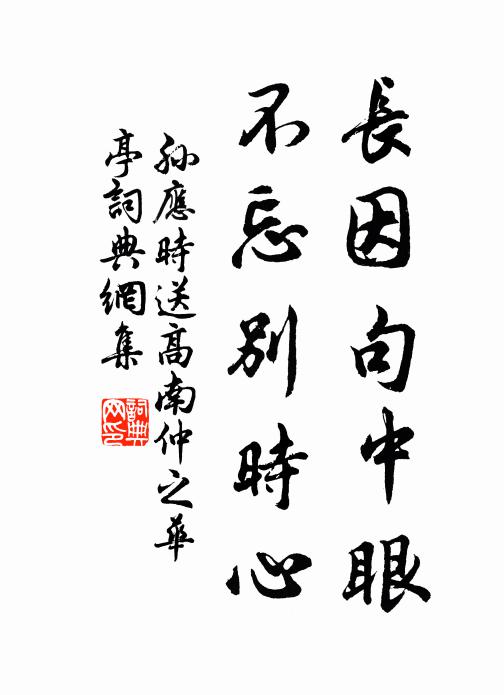 長因句中眼
不忘別時心
孫應時送高南仲之華
亭詞典網集
詞典
网印